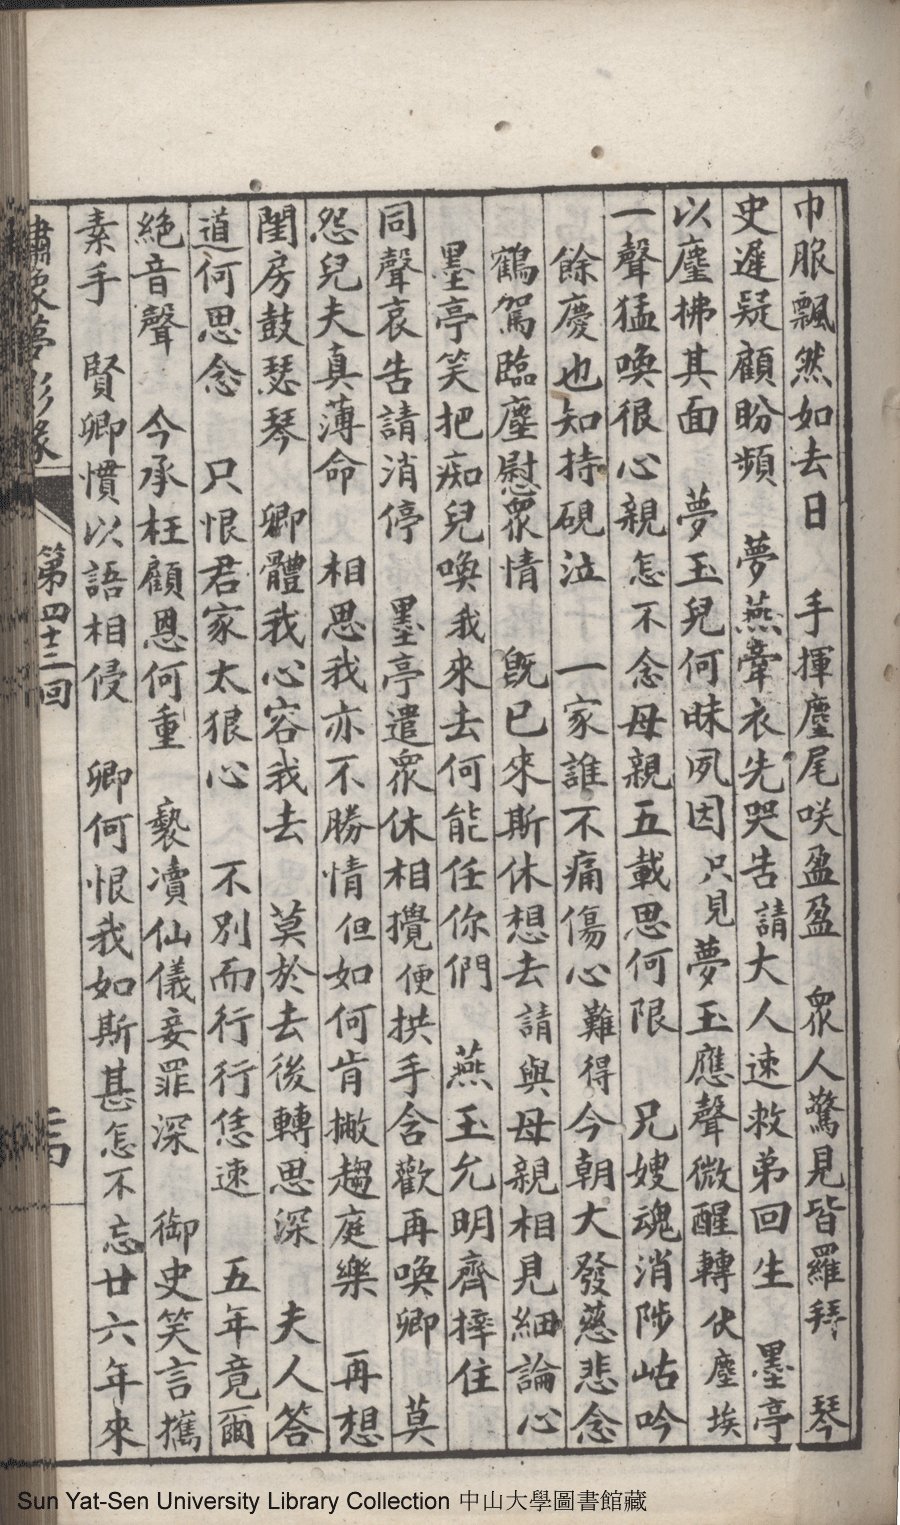 巾服飄然如去日　手揮麈尾咲盈盈　衆人驚見皆羅拜　琴
史遲疑顧盼頻　夢燕牽衣先哭告請大人速救弟回生　墨亭
以麈拂其面　夢玉兒何昧夙因只見夢玉應聲微醒轉伏塵埃
一聲猛喚很心親怎不念母親五載思何限　兄嫂魂消陟岵吟
餘慶也知持硯泣　一家誰不痛傷心難得今朝大發慈悲念
鶴駕臨塵慰衆情　旣已來斯休想去請與母親相見細論心
墨亭笑把痴兒喚我來去何能任你們　燕玉允明齊摔住
同聲哀告請消停　墨亭遣衆休相攪便拱手含歡再喚卿　莫
怨兒夫真薄命　相思我亦不勝情但如何肯撇趨庭樂　再想
閨房鼓瑟琴　卿體我心容我去　莫於去後轉思深　夫人答
道何思念　只恨君家太狠心　不別而行行恁速　五年竟爾
絕音聲　今承枉顧恩何重　褻凟仙儀妾罪深　御史笑言攜
素手　賢卿慣以語相侵　卿何恨我如斯甚怎不忘廿六年來
夢影緣
第四十三回
Sun Yat-Sen University Library Collection 中山大學圖書館藏